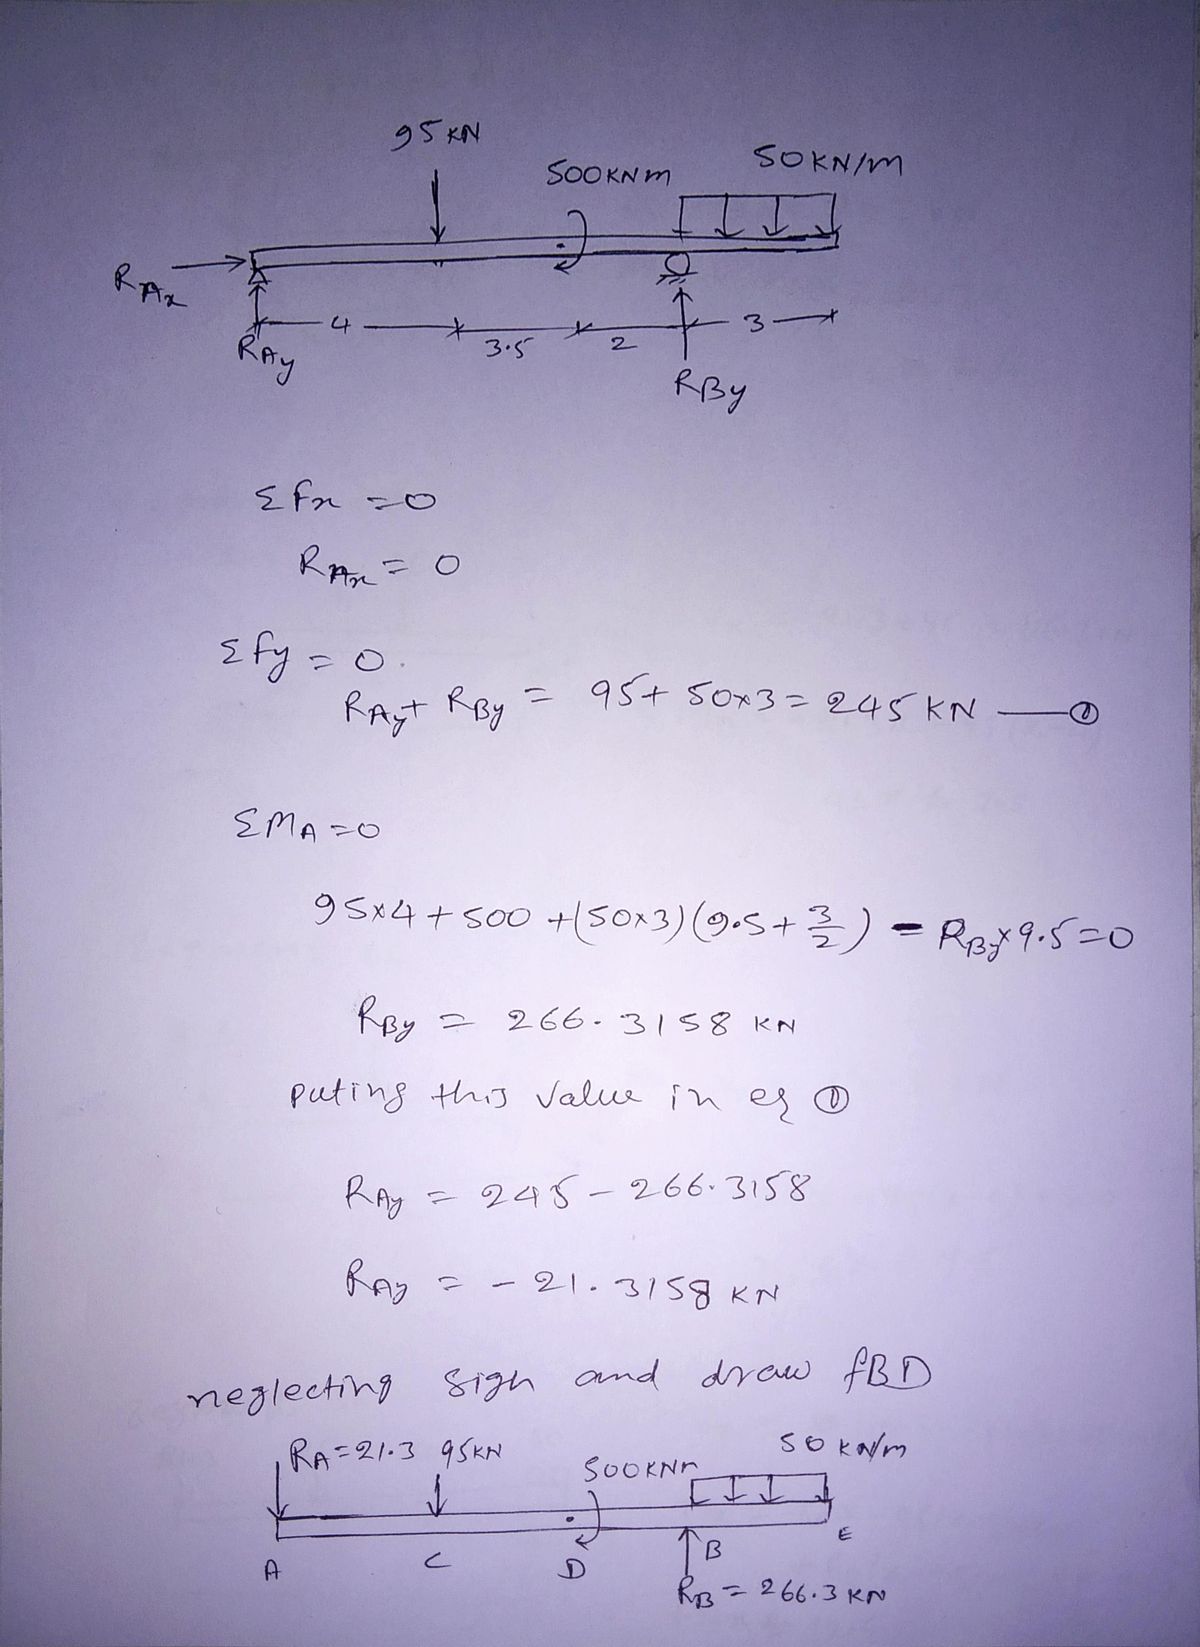 95 KN
500KNm 50KN/m
RAx
4 3.5 2 3
RAy RBy
Σfx = 0
RAx = 0
Σfy = 0.
RAy + RBy = 95 + 50×3 = 245 KN — ①
ΣMA = 0
95×4 + 500 + (50×3)(9.5 + 3/2) - RBy×9.5 = 0
RBy = 266.3158 KN
puting this value in eq ①
RAy = 245 - 266.3158
RAy = - 21.3158 KN
neglecting sign and draw fBD
RA = 21.3 95KN 500KNm 50 kN/m
A C D B E
RB = 266.3 KN